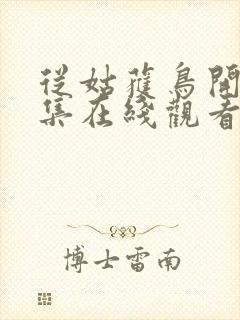 從姑獲鳥開
集在綫觀看
博士雷南